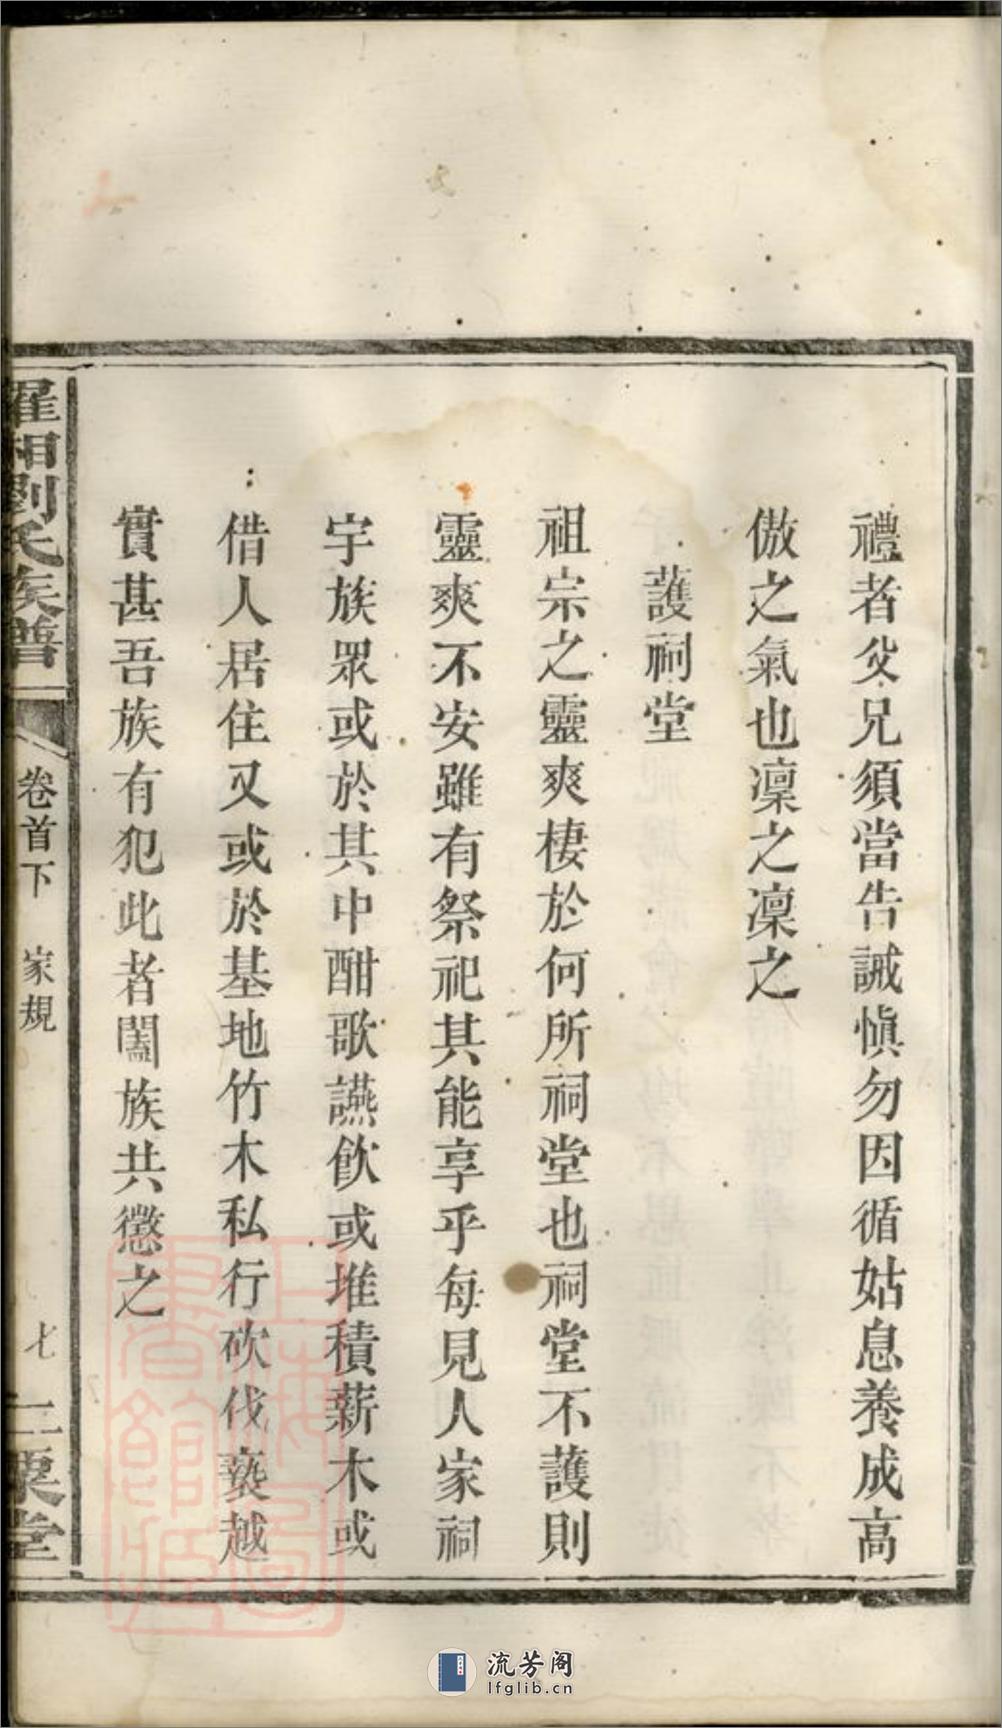 禮者父兄須當告誡愼勿因循姑息養成高
傲之氣也凜之凜之
護祠堂
祖宗之靈爽棲於何所祠堂也祠堂不護則
靈爽不安雖有祭祀其能享乎每見人家祠
宇族眾或於其中酣歌讌飲或堆積薪木或
借人居住又或於基地竹木私行砍伐褻越
實甚吾族有犯此者闔族共懲之
羅湘劉氏族譜
卷首下 家規
七
二粟堂
上海圖書館藏
流芳阁
lfglib.cn